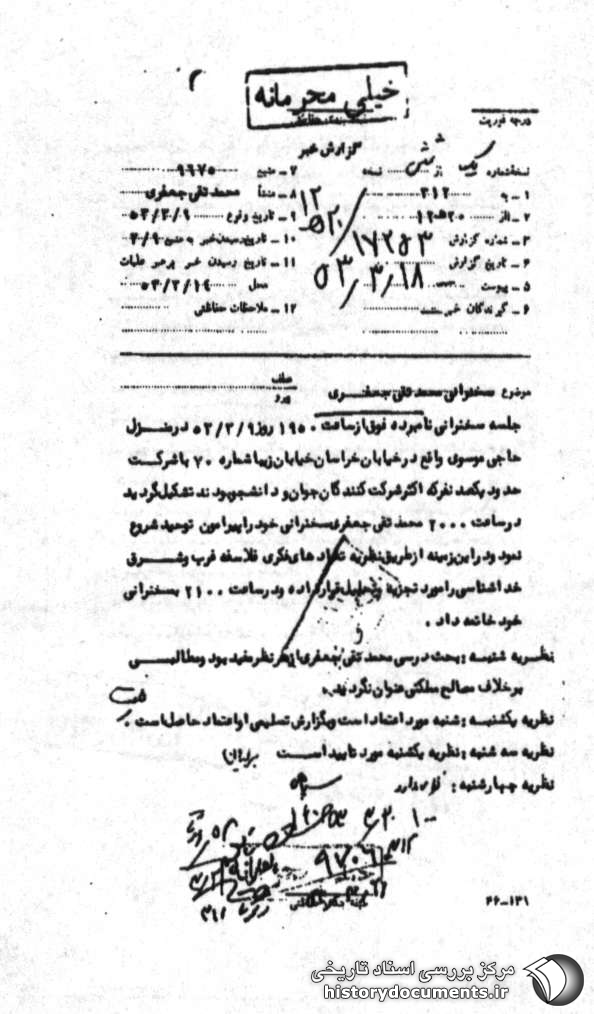 خیلی محرمانه
درجه فوریت
گزارش خبر
نسخه شماره یک از شش نسخه
۱ - به ۳۱۲
۲ - از ۱۲ﻫ۲۰
۳ - شماره گزارش ۱۷۲۵۳ / ۲۰ﻫ۱۲
۴ - تاریخ گزارش ۵۳/۳/۱۸
۵ - پیوست
۶ - گیرندگان خبر
۷ - منبع ۹۶۷۵
۸ - منشأ محمد تقی جعفری
۹ - تاریخ وقوع ۵۳/۳/۹
۱۰ - تاریخ رسیدن خبر به منبع ۳/۹
۱۱ - تاریخ رسیدن خبر برهبر عملیات
محل ۵۳/۳/۱۴
۱۲ - ملاحظات حفاظتی
موضوع سخنرانی محمد تقی جعفری
عطف
پیرو
جلسه سخنرانی نامبرده فوق از ساعت ۱۹۵۰ روز ۵۳/۳/۹ در منزل
حاجی موسوی واقع در خیابان خراسان خیابان زیبا شماره ۷۰ با شرکت
حدود یکصد نفر که اکثر شرکت کنندگان جوان و دانشجو بودند تشکیل گردید
در ساعت ۲۰۰۰ محمد تقی جعفری سخنرانی خود را پیرامون توحید شروع
نمود و در این زمینه از طریق نظریه تضاد های فکری فلاسفه غرب و شرق
خداشناسی را مورد تجزیه و تحلیل قرار داده و در ساعت ۲۱۰۰ بسخنرانی
خود خاتمه داد .
نظریه شنبه : بحث درسی محمد تقی جعفری از هر نظر مفید بود و مطالبی
بر خلاف مصالح مملکتی عنوان نگردید .
نظریه یکشنبه : شنبه مورد اعتماد است و بگزارش تسلیمی او اعتماد حاصل است .
نظریه سه شنبه : نظریه یکشنبه مورد تایید است
نظریه چهارشنبه : نظری ندارد
۹۷۰۶
۳۱۲
طبقه بندی حفاظتی
۴۶-۱۳۱
مرکز بررسی اسناد تاریخی
historydocuments.ir